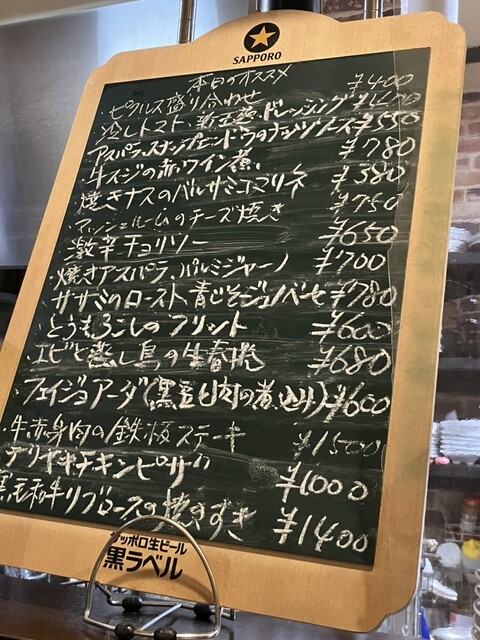 SAPPORO
本日のオススメ
・ピクルス盛り合わせ ¥400
・冷しトマト 新玉葱ドレッシング
アスパラ、スナップエンドウのナッツソース ¥550
牛スジの赤ワイン煮 ¥780
焼きナスのバルサミコマリネ ¥580
・マッシュルームのチーズ焼き ¥750
激辛チョリソー ¥650
・焼きアスパラ、パルミジャーノ ¥700
・ササミのロースト 青じそジェノベーゼ ¥780
・とうもろこしのフリット ¥600
・エビと蒸し鳥の生春捲 ¥680
・フェイジョアーダ(黒豆と肉の煮込み) ¥600
・牛赤身肉の鉄板ステーキ ¥1500
テリヤキチキンピザ ¥1000
黒毛和牛リブロースの焼きすき ¥1400
サッポロ生ビール
黒ラベル